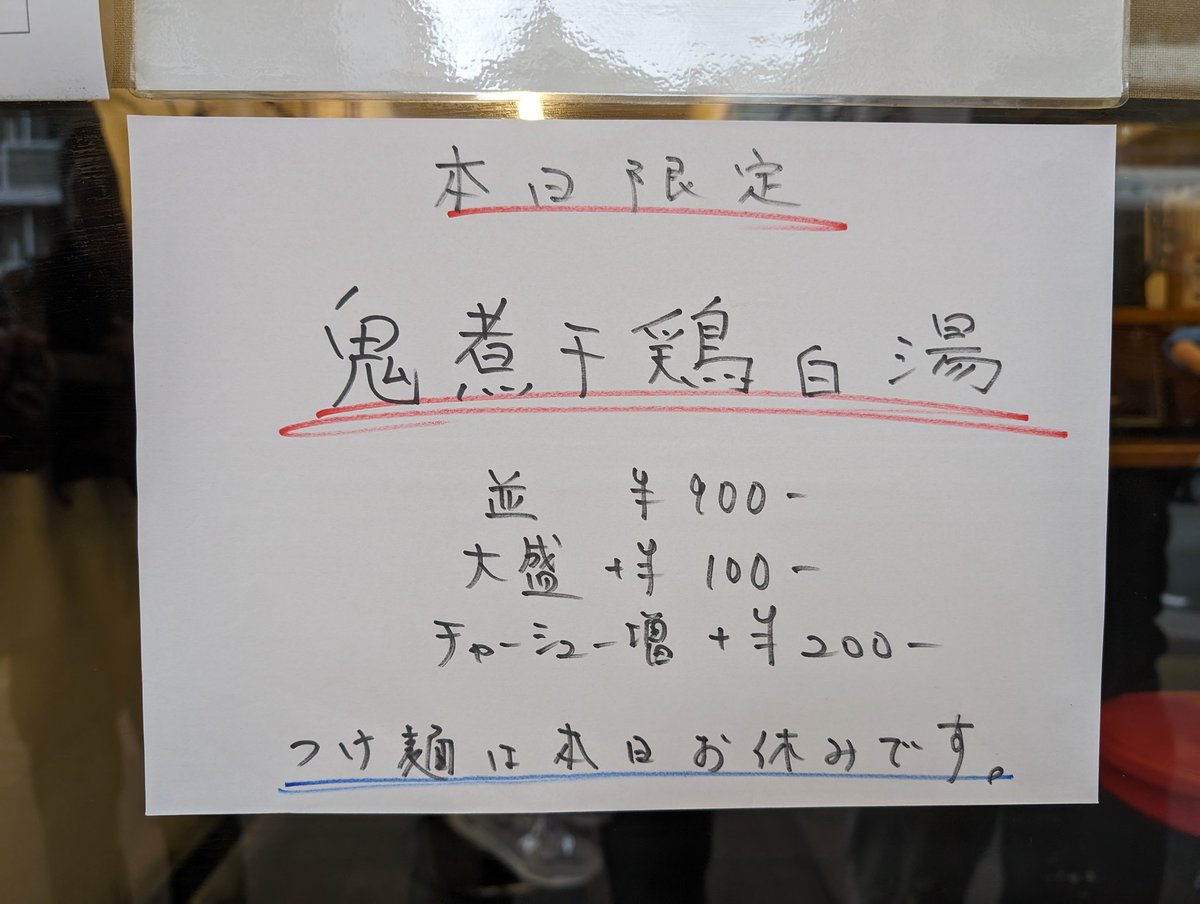 本日限定
鬼煮干鶏白湯
並 ¥900-
大盛 +¥100-
チャーシュー増 +¥200-
つけ麺は本日お休みです。